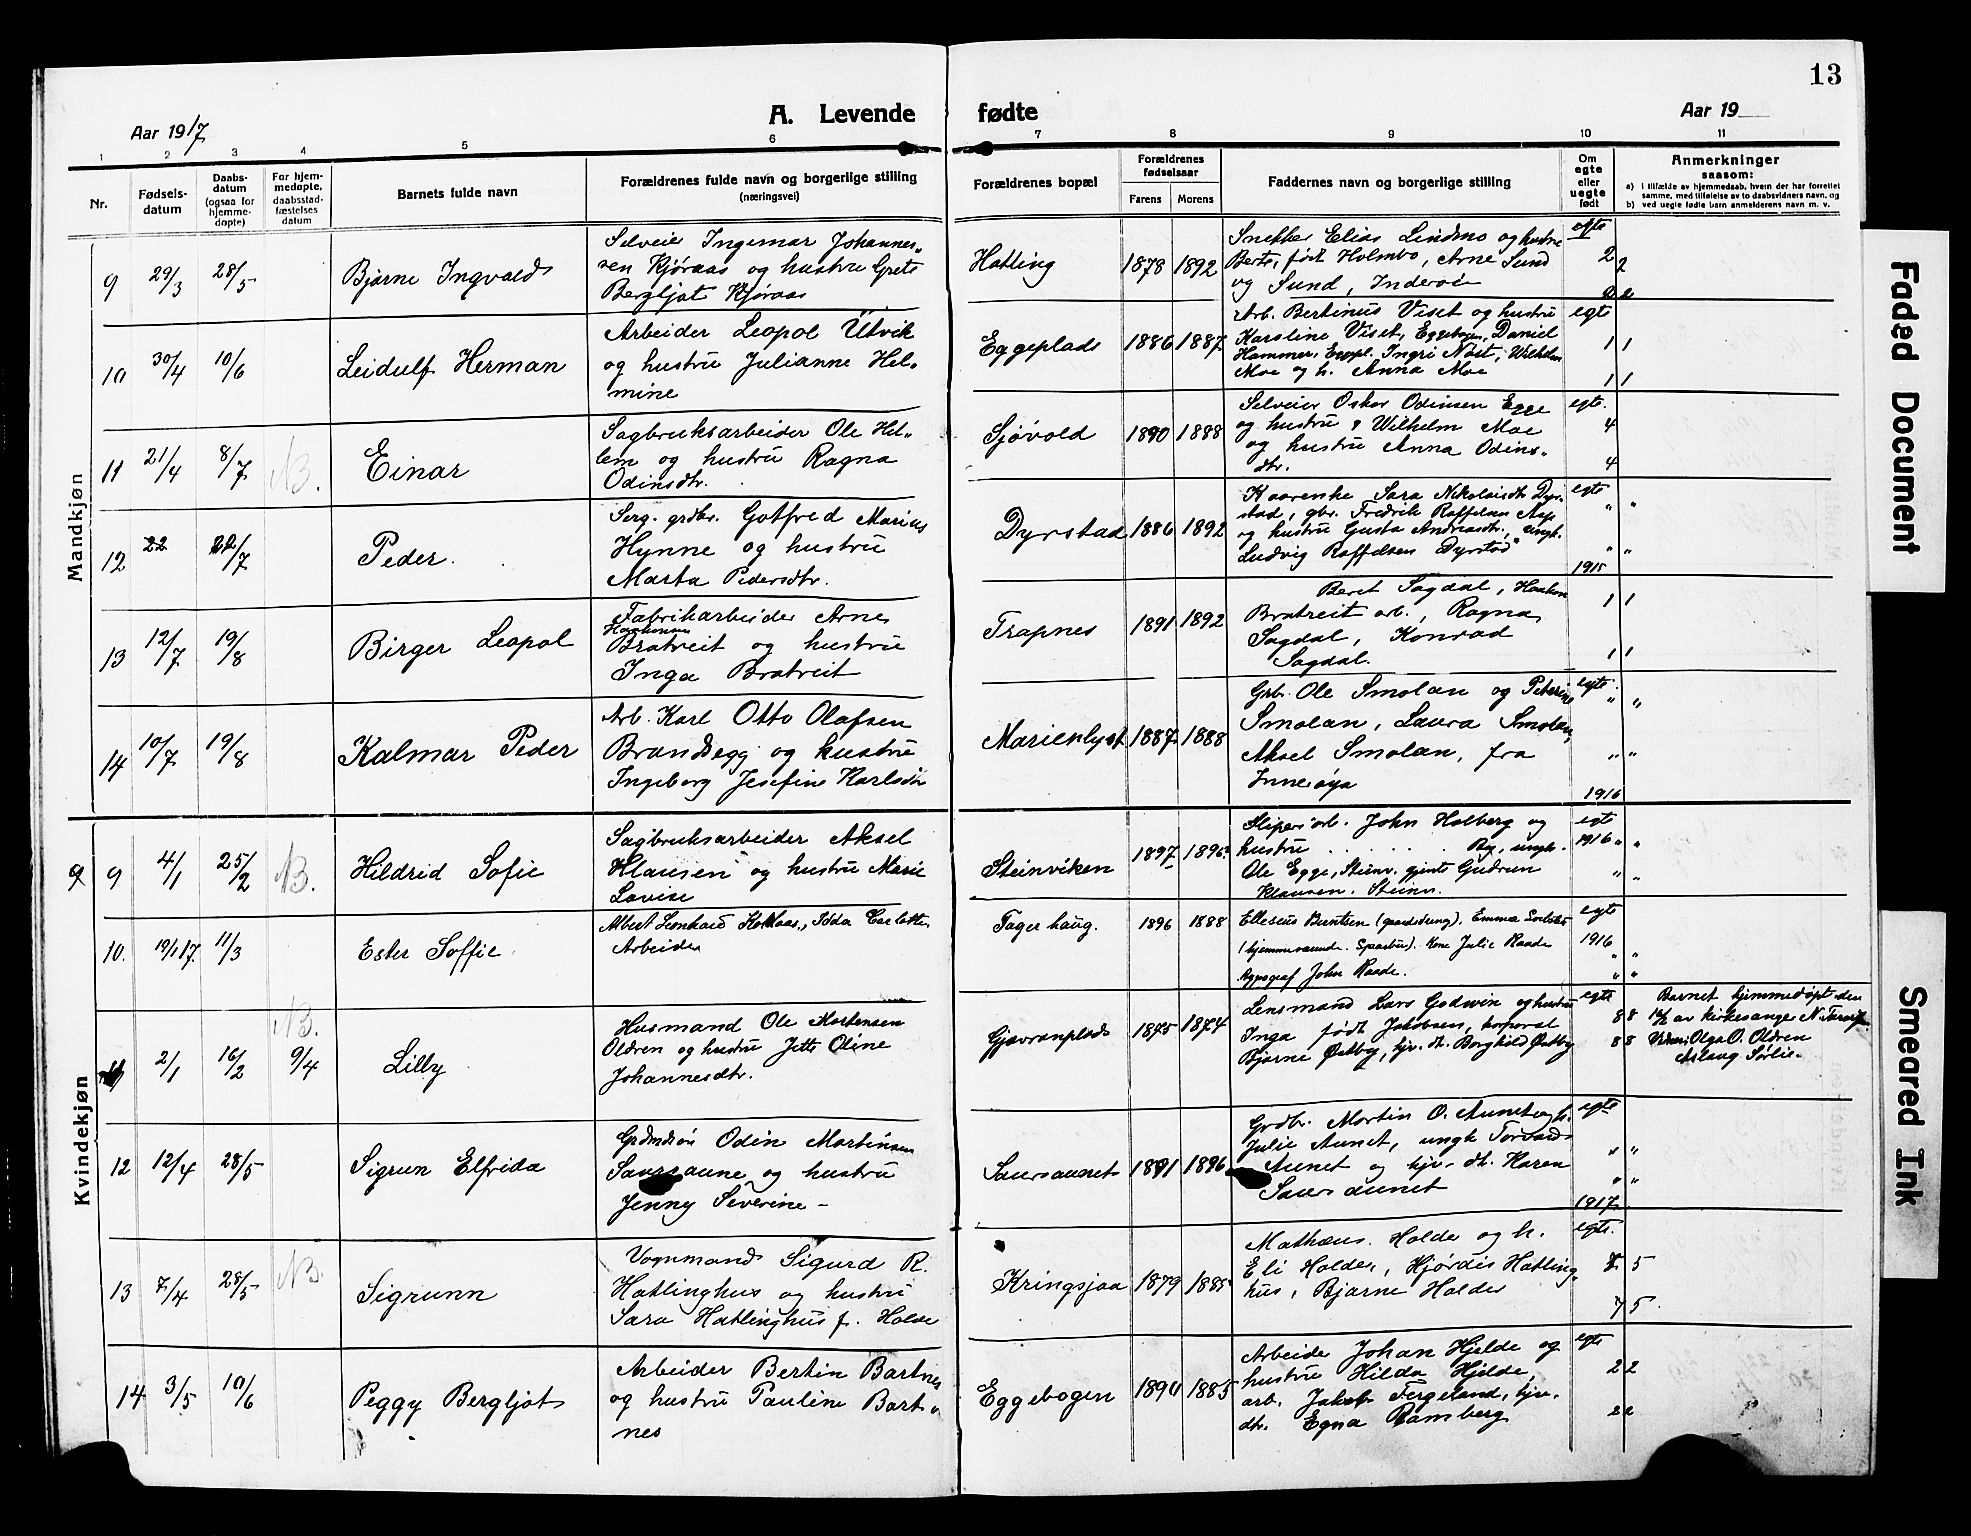 13
A. Levende fødte
Aar 1917
Aar 19
1 2 3 4 5 6 7 8 9 10 11
Nr.
Fødsels-
datum
Daabs-
datum
(ogsaa for
hjemme-
døpte)
For hjem-
medøpte,
daabsstad-
fæstelses
datum
Barnets fulde navn
Forældrenes fulde navn og borgerlige stilling
(næringsvei)
Forældrenes bopæl
Forældrenes
fødselsaar
Farens Morens
Faddernes navn og borgerlige stilling
Om
egte
eller
uegte
født
Anmerkninger
saasom:
a) i tilfælde av hjemmedaab, hvem der har forrettet
samme, med tilføielse av to daabsvidners navn, og
b) ved uegte fødte barn anmelderens navn m. v.
Mandkjøn
9 29/3 28/5 Bjarne Ingvald
Selveier Ingemar Johannes-
sen Kjøraas og hustru Grete
Bergljot Kjøraas
Hatling 1878 1892
Snekker Elias Lindmo og hustru
Berte, født Holmbo, Arne Sund
og Sund, Inderøen
egte
2 2
2 2
10 30/4 10/6 Leidulf Herman
Arbeider Leopol Utvik
og hustru Julianne Hel-
mine
Eggeplads 1886 1887
Arb. Bertinus Viset og hustru
Karoline Viset, Eggebogen, Daniel
Hammer, Eggpl. Ingri Nøst, Wilhelm
Moe og h. Anna Moe
egte
1 1
1 1
11 21/4 8/7 NB. Einar
Sagbruksarbeider Ole Hel-
lem og hustru Ragna
Odinsdtr.
Sjøvold 1890 1888
Selveier Oskar Odinsen Egge
og hustru & Wilhelm Moe
og hustru Anna Odins-
dtr.
egte.
4
4
12 22 22/7 Peder.
Serg. grdbr. Gotfred Marius
Hynne og hustru
Marta Pedersdtr.
Dyrstad 1886 1892
Kaarenke Sara Nikolaisdtr Dyr-
stad, gbr. Fredrik Roffelsen Aas
og hustru Gusta Andreasdtr., ungk.
Ludvig Roffelsen Dyrstad
egte
" "
" "
1915
13 12/7 19/8 Birger Leopol
Fabrikarbeider Arne
Haakonsen
Bratreit og hustru
Inga Bratreit
Trapnes 1891 1892
Beret Sagdal, Haakon
Bratreit arb., Ragna
Sagdal, Konrad
Sagdal.
1 1
1 1
14 10/7 19/8 Kalmar Peder
Arb. Karl Otto Olafsen
Brandsegg og hustru
Ingeborg Josefine Karlsdtr
Marienlyst 1887 1888
Grb. Ole Smolan og Peterine
Smolan, Laura Smolan,
Aksel Smolan, fra
Innerøya
egte
" "
" "
1916
Kvindekjøn
9 9 4/1 25/2 NB. Hildrid Sofie
Sagbruksarbeider Aksel
Klausen og hustru Marie
Lovise
Steinviken 1897 1896
Sliperiarb. John Holberg og
hustru . . . . . By, ungk.
Ole Egge, Steinv. pjente Gudrun
Klausen. Steinv.
egte
1916 " "
" "
10. 19/1 17. 11/3 Ester Soffie
Albert Leonhard , Idda Carlotte
Arbeider
Tagerhaug. 1896 1888
Elleseus Berntsen (gaardsdreng). Emma
(hjemmeværende. Sparbu). Kone Julie Raade
Typograf John Raade.
egte
1916
" "
" "
11 2/1 16/2 NB. 9/4 Lilly
Husmand Ole Mortensen
Oldren og hustru Jette Oline
Johannesdtr.
Gjævranplads 1875 1874
Lensmand Lars Godwin og hustru
Inga født Jakobsen, korporal
Bjarne Østby, hjv. dt. Borghild Østby
egte
8 8
8 8
Barnet hjemmedøpt den
16/2 av kirkesanger N.
Vidner: Olga O. Oldren
Aslaug Sølie.
12 12/4 28/5 Sigrun Elfrida
Grdmdsøn Odin Martinsen
Saursaune og hustru
Jenny Severine -
Saursaunet 1891 1896
Grdbr. Martin O. Aunet og h.
Julie Aunet, ungk Torvald
Aunet og hjv. dt. Karen
Saursaunet
egte
" "
" "
1917
13 7/4 28/5 NB Sigrunn
Vognmand Sigurd R.
Hatlinghus og hustru
Sara Hatlinghus f. Holde
Kringsjaa 1879 1885
Mathæus. Holde og h.
Eli Holder, Hjørdis Hatling-
hus, Bjarne Holder
egte.
7 5
7 5
14 3/5 10/6 Peggy Bergljot
Arbeider Bertin Bartnes
og hustru Pauline Bart-
nes
Eggebogen 1890 1885
Arbeide Johan Hjelde og
hustru Hilda Hjelde,
arb. Jakob Fergeland, hjv.
dt. Egna Ramberg
egte
2 2
2 2
Faded Document
Smeared Ink